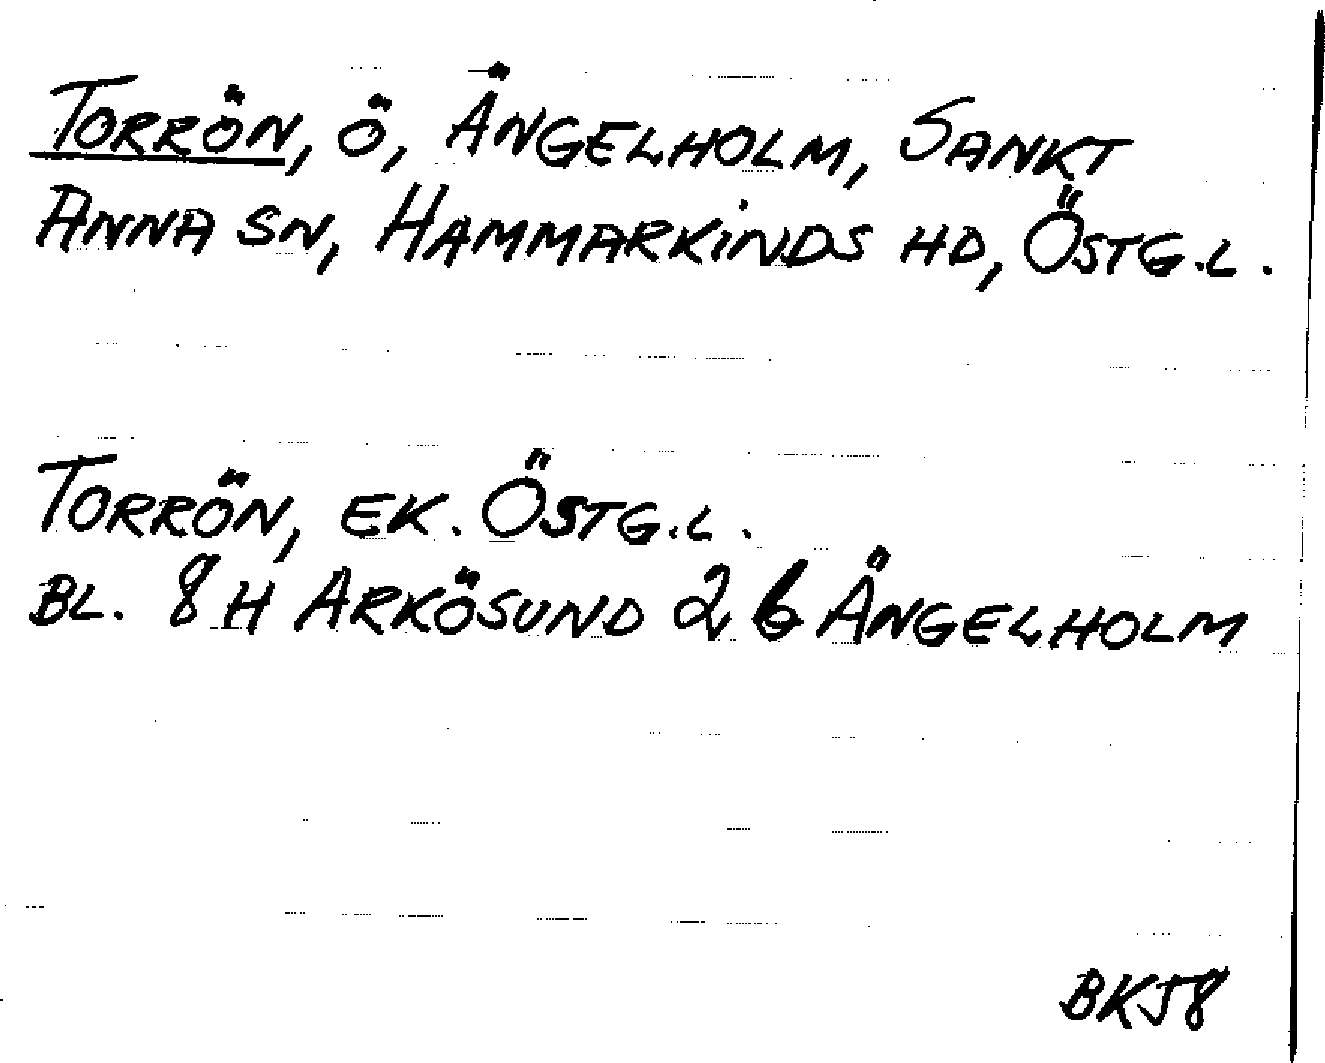 TORRÖN, Ö, ÄNGELHOLM, SANKT
ANNA SN, HAMMARKINDS HD, ÖSTG.L.
TORRÖN, EK. ÖSTG.L.
BL. 8H ARKÖSUND 2b ÄNGELHOLM
BK58